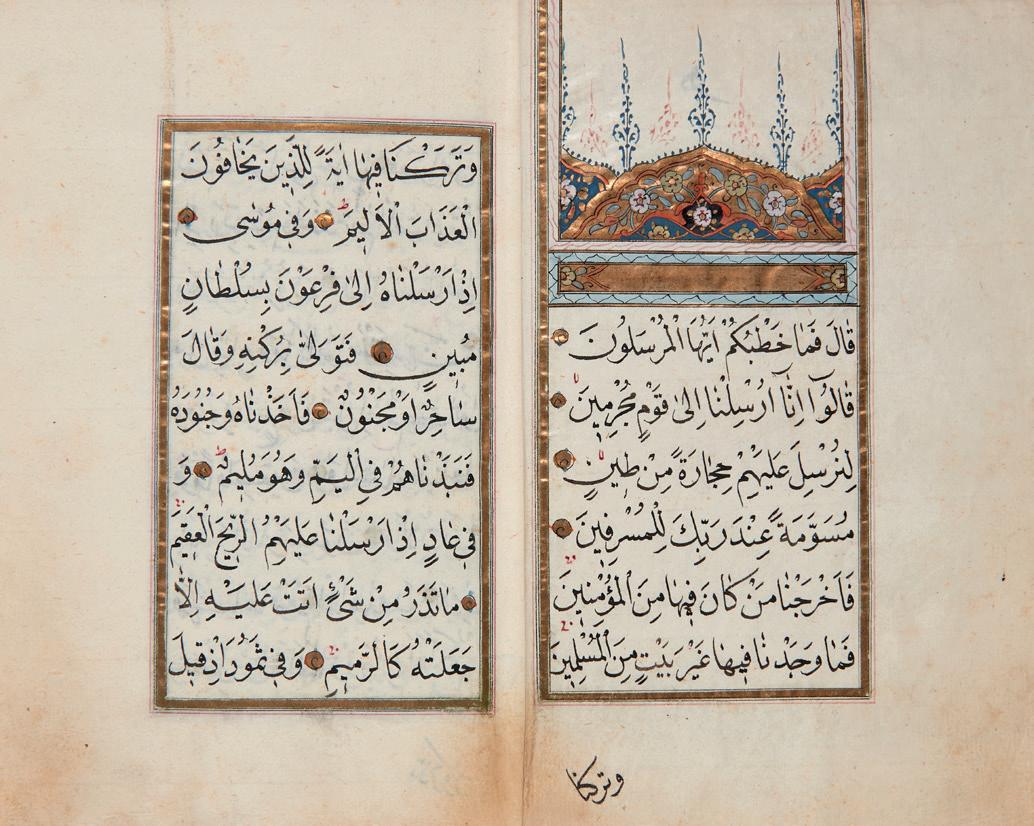 قَالَ فَمَا خَطْبُكُمْ اَيُّهَا الْمُرْسَلُونَ
قَالُوا اِنَّا اُرْسِلْنَا اِلٰى قَوْمٍ مُجْرِمِينَ
لِنُرْسِلَ عَلَيْهِمْ حِجَارَةً مِنْ طِينٍ
مُسَوَّمَةً عِنْدَ رَبِّكَ لِلْمُسْرِفِينَ
فَاَخْرَجْنَا مَنْ كَانَ فِيهَا مِنَ الْمُؤْمِنِينَ
فَمَا وَجَدْنَا فِيهَا غَيْرَ بَيْتٍ مِنَ الْمُسْلِمِينَ
وتركنا
وَتَرَكْنَا فِيهَا اٰيَةً لِلَّذِينَ يَخَافُونَ
الْعَذَابَ الْاَلِيمَ وَفِي مُوسٰى
اِذْ اَرْسَلْنَاهُ اِلٰى فِرْعَوْنَ بِسُلْطَانٍ
مُبِينٍ فَتَوَلّٰى بِرُكْنِهِ وَقَالَ
سَاحِرٌ اَوْ مَجْنُونٌ فَاَخَذْنَاهُ وَجُنُودَهُ
فَنَبَذْنَاهُمْ فِي الْيَمِّ وَهُوَ مُلِيمٌ وَ
فِي عَادٍ اِذْ اَرْسَلْنَا عَلَيْهِمُ الرِّيحَ الْعَقِيمَ
مَا تَذَرُ مِنْ شَيْءٍ اَتَتْ عَلَيْهِ اِلَّا
جَعَلَتْهُ كَالرَّمِيمِ وَفِي ثَمُودَ اِذْ قِيلَ